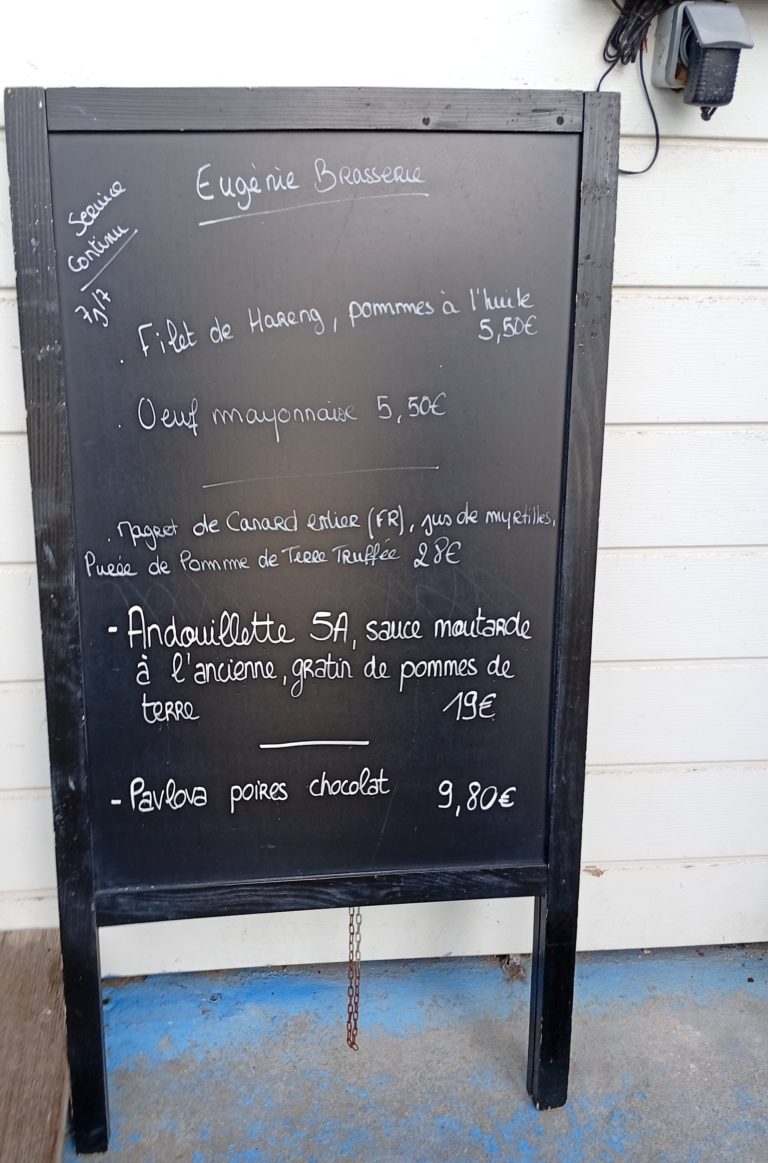 Eugènie Brasserie
Service
Continu
7j/7
. Filet de Hareng, pommes à l'huile
5,50€
. Oeuf mayonnaise 5,50€
. Magret de Canard entier (FR), jus de myrtilles,
Purée de Pomme de Terre Truffée 28€
- Andouillette 5A, sauce moutarde
à l'ancienne, gratin de pommes de
terre 19€
- Pavlova poires chocolat 9,80€